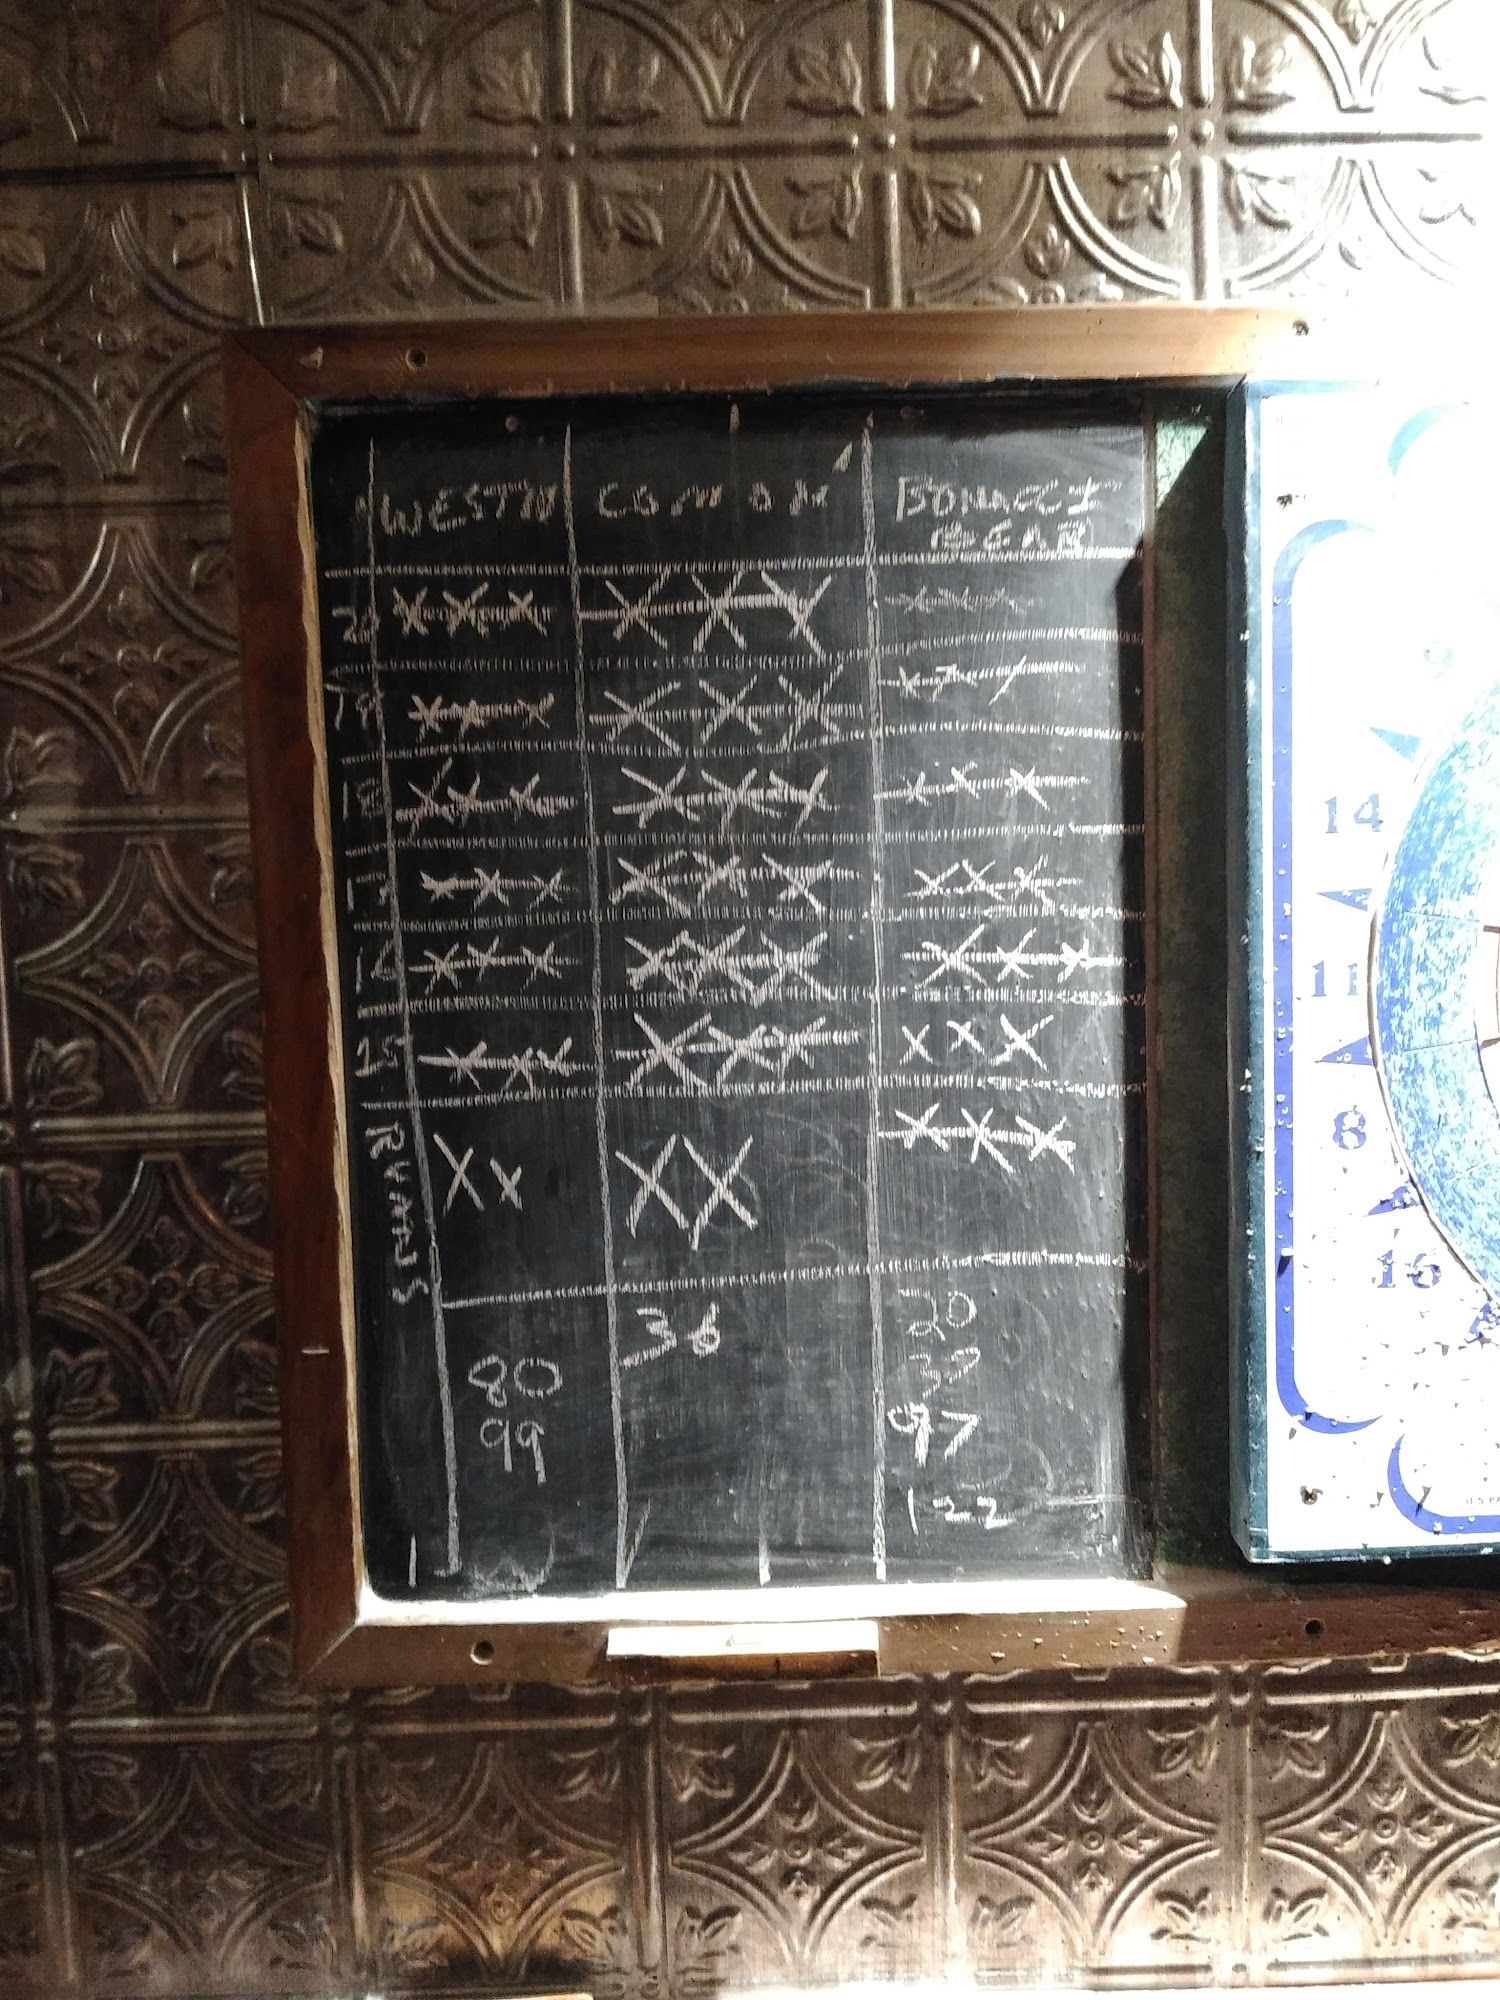 WESTN COMMON
BEAR
XXX XXX XXX
19 XXX XXX XX/
18 XXX XXX XXX
17 XXX XXX XXX
16 XXX XXX XXX
15 XXX XXX XXX
XX XX XXX
36 20
80 39
99 97
122
14
11
8
16